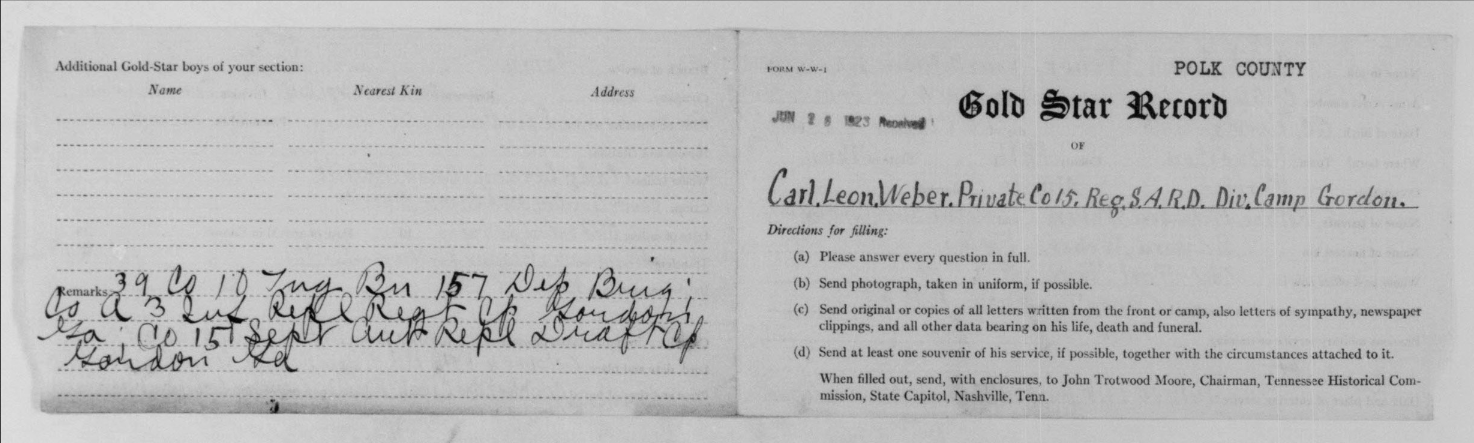 Additional Gold-Star boys of your section:
Name Nearest Kin Address
Remarks 39 Co 10 Tng Bn 157 Dep Brig;
Co A 3 Inf Repl Regt Cp Gordon;
Ga; Co 15 Sept Aut Repl Draft Cp
Gordon Ga
FORM W-W-1
POLK COUNTY
Gold Star Record
JUN 1923 Received
OF
Carl. Leon. Weber. Private Co 15. Reg. S.A.R.D. Div. Camp Gordon.
Directions for filling:
(a) Please answer every question in full.
(b) Send photograph, taken in uniform, if possible.
(c) Send original or copies of all letters written from the front or camp, also letters of sympathy, newspaper
clippings, and all other data bearing on his life, death and funeral.
(d) Send at least one souvenir of his service, if possible, together with the circumstances attached to it.
When filled out, send, with enclosures, to John Trotwood Moore, Chairman, Tennessee Historical Com-
mission, State Capitol, Nashville, Tenn.